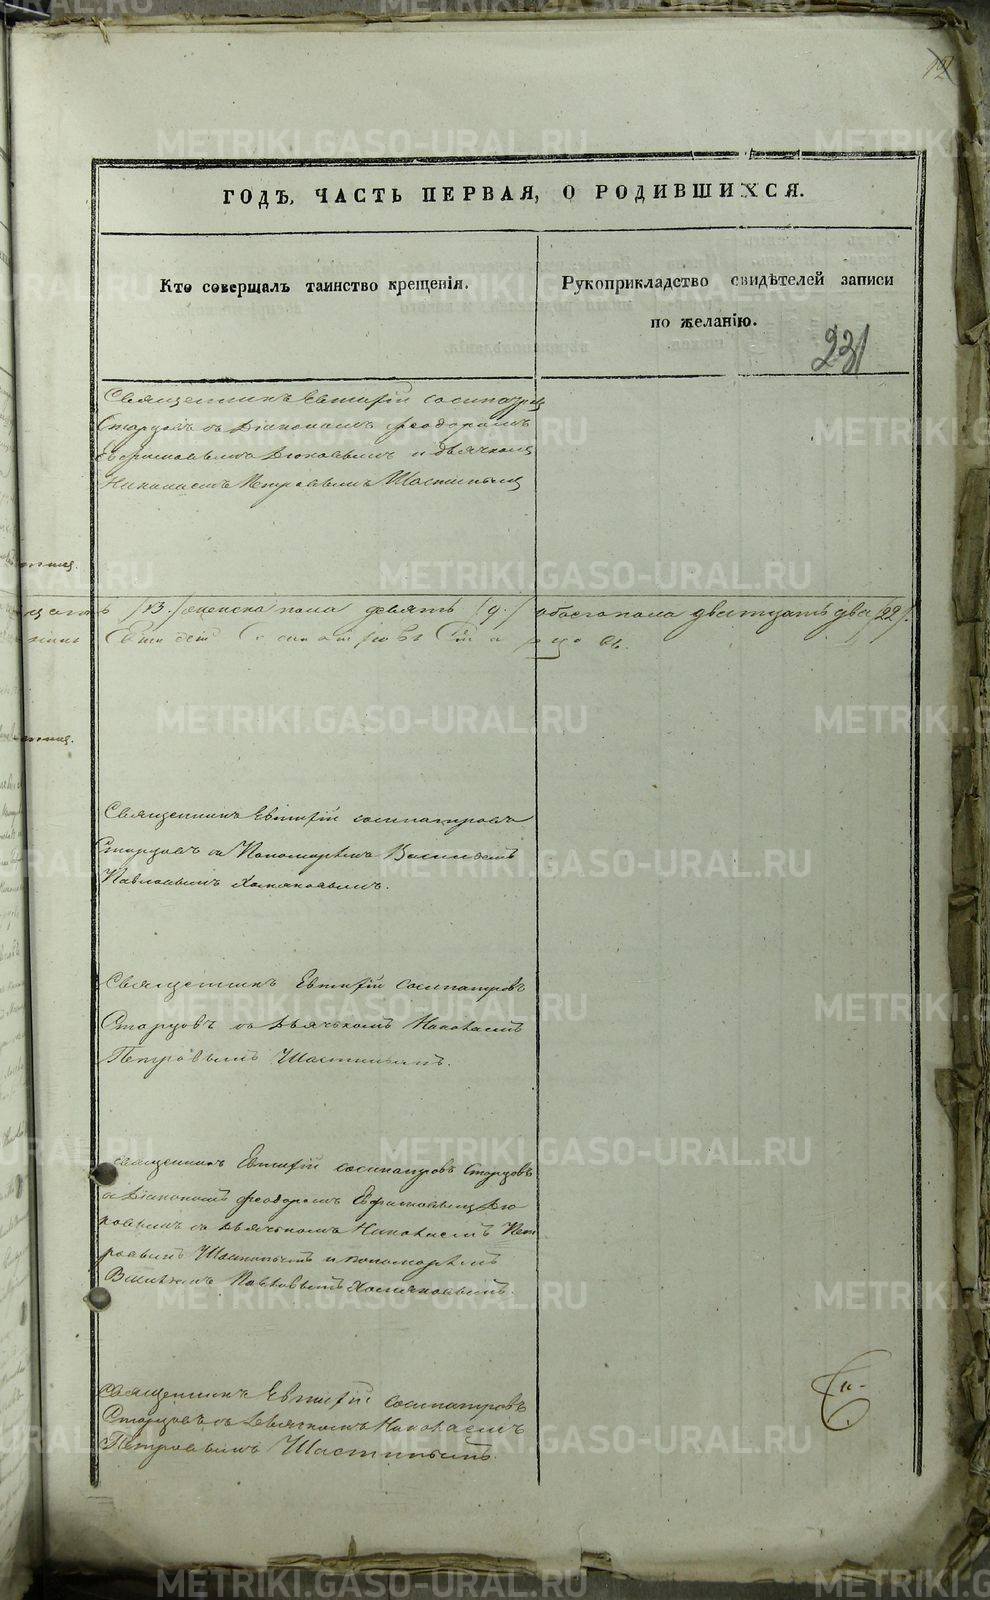 12
ГОДѢ, ЧАСТЬ ПЕРВАЯ, О РОДИВШИХСЯ.
Кто совершалъ таинство крещенія.
Рукоприкладство свидѣтелей записи
по желанію.
231
Священникъ Евтихій Сосипатров
Старцовъ съ Діакономъ Феодоромъ
и дьячком
Николаемъ Петровымъ Шастинымъ
/13./ женска пола девять /9./ обоего пола двatцать два /22/.
Сосипатровъ Старцовъ.
Священникъ Евтихій Сосипатровъ
Старцовъ съ Пономаремъ Василіемъ
Павловымъ Хомяковымъ.
Священникъ Евтихій Сосипатровъ
Старцовъ съ Дьячкомъ Николаемъ
Петровымъ Шастинымъ.
Священникъ Евтихій Сосипатровъ Старцовъ
съ Діакономъ Феодоромъ Ефимовымъ Дю
ковымъ съ Дьячкомъ Николаемъ Пет
ровымъ Шастинымъ и пономаремъ
Василіемъ Павловымъ Хомяковымъ.
Священникъ Евтихій Сосипатровъ
Старцовъ съ Дьячкомъ Николаемъ
Петровымъ Шастинымъ.
METRIKI.GASO-URAL.RU